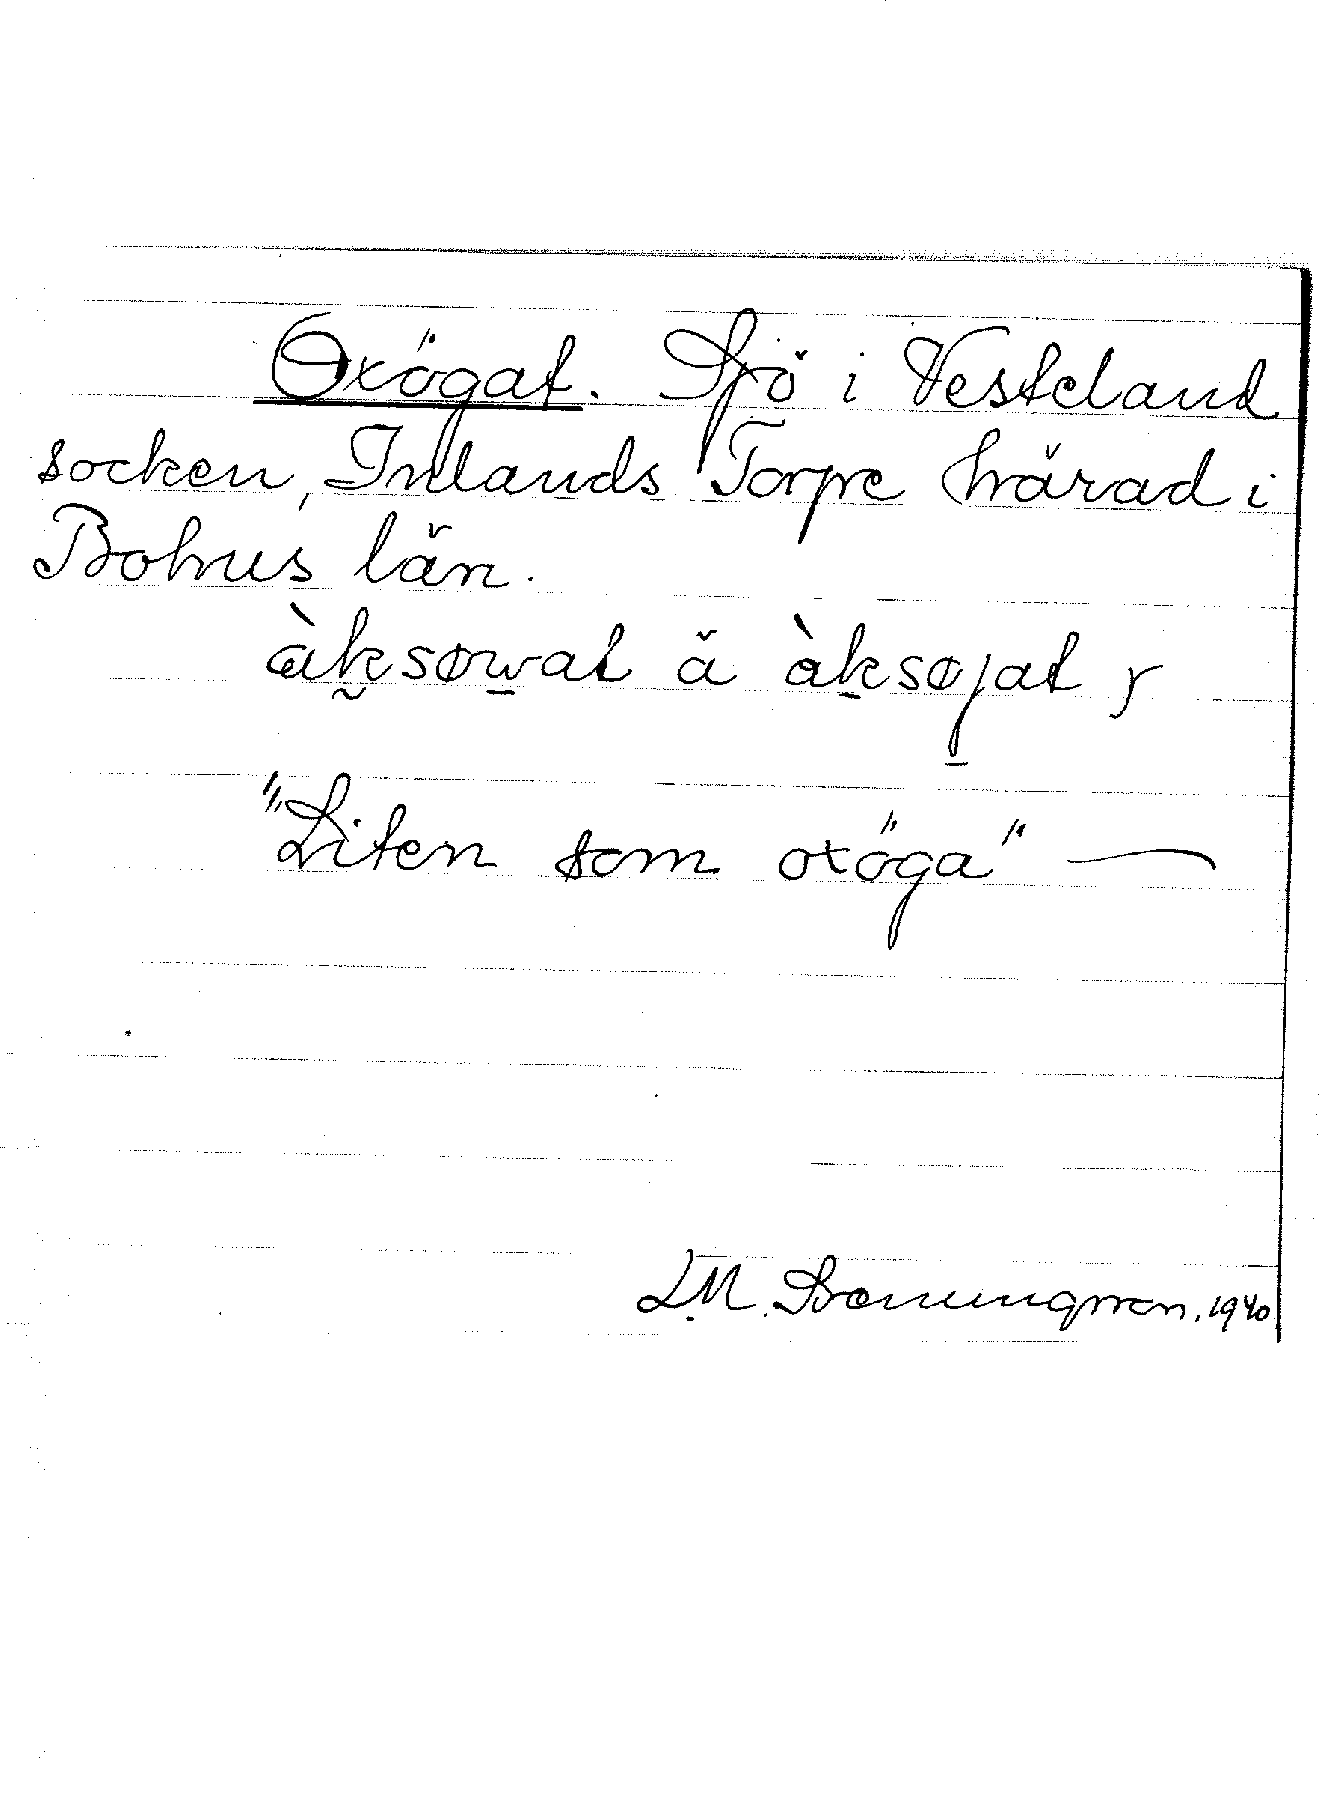 Oxögat. Sjö i Vesteland
socken, Inlands Torpe härad i
Bohus län.
àksøwat ä àksøjat
"Liten som oxöga" —
L.M. 1940